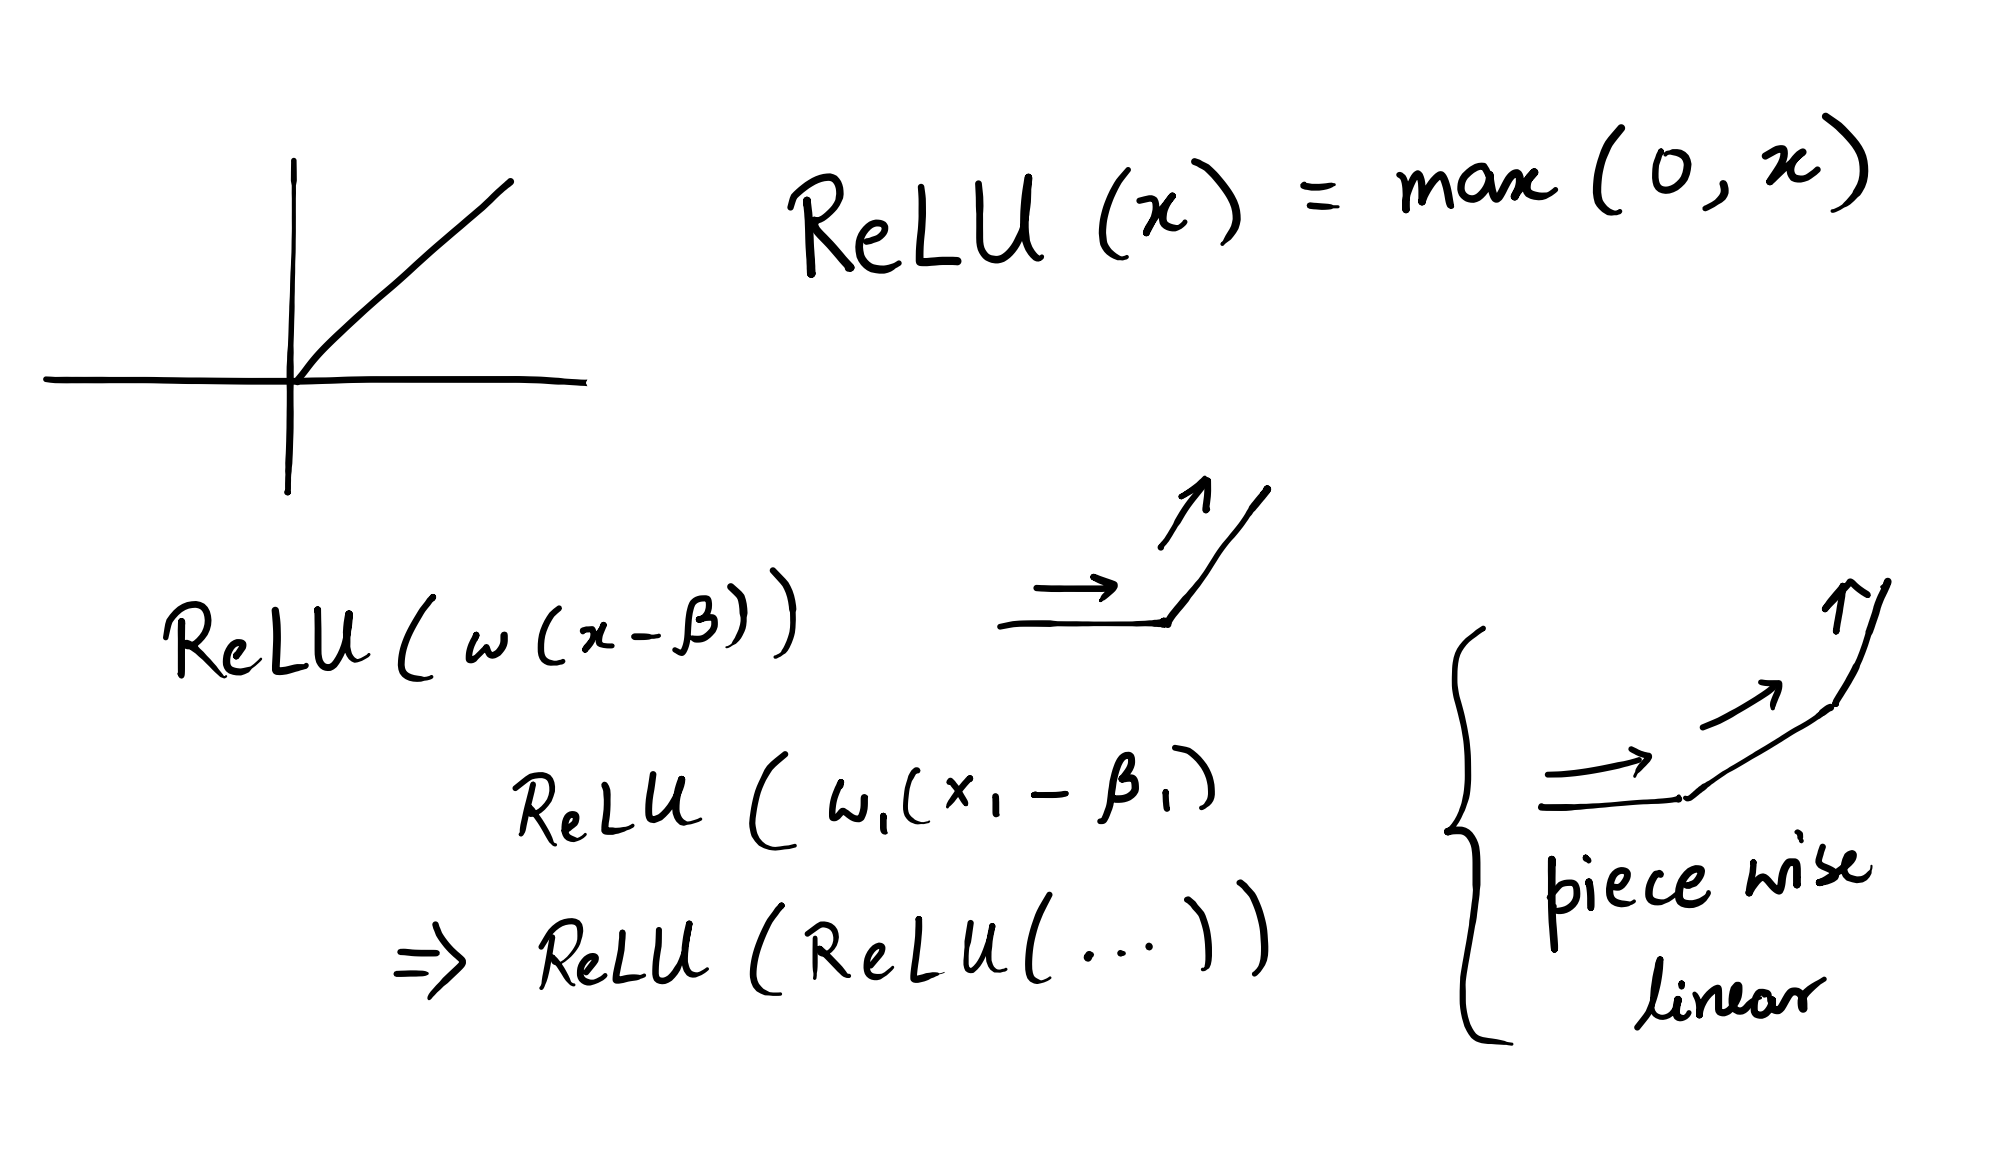 ReLU (x) = max (0, x)
ReLU ( w (x - β))
ReLU ( w₁(x₁ - β₁)
⇒ ReLU ( ReLU( ... ))
piece wise
linear